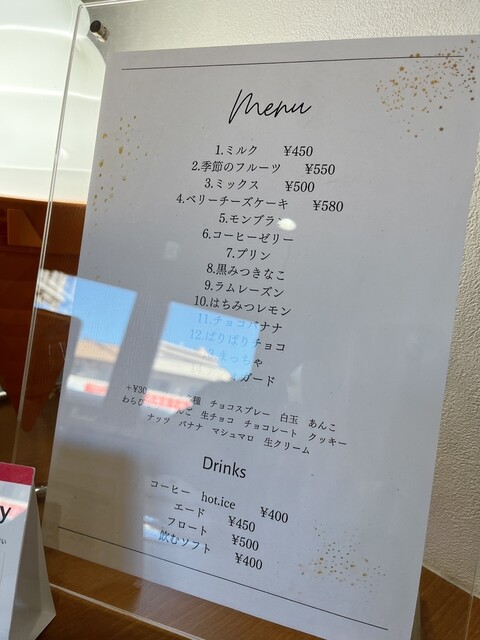 Menu
1.ミルク ¥450
2.季節のフルーツ ¥550
3.ミックス ¥500
4.ベリーチーズケーキ ¥580
5.モンブラン
6.コーヒーゼリー
7.プリン
8.黒みつきなこ
9.ラムレーズン
10.はちみつレモン
11.チョコバナナ
12.ぱりぱりチョコ
まっちゃ
ガード
+¥30 種 チョコスプレー 白玉 あんこ
わらび 生チョコ チョコレート クッキー
ナッツ バナナ マシュマロ 生クリーム
Drinks
コーヒー hot.ice ¥400
エード ¥450
フロート ¥500
飲むソフト ¥400
y